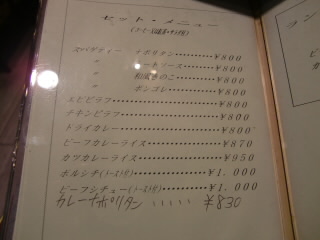 セット・メニュー
スパゲティー ナポリタン ¥800
〃 ミートソース ¥800
〃 和風きのこ ¥800
〃 ボンゴレ ¥800
エビピラフ ¥800
チキンピラフ ¥800
ドライカレー ¥800
ビーフカレーライス ¥870
カツカレーライス ¥950
ボルシチ(トースト付) ¥1,000
ビーフシチュー(トースト付) ¥1,000
カレーナポリタン ¥830